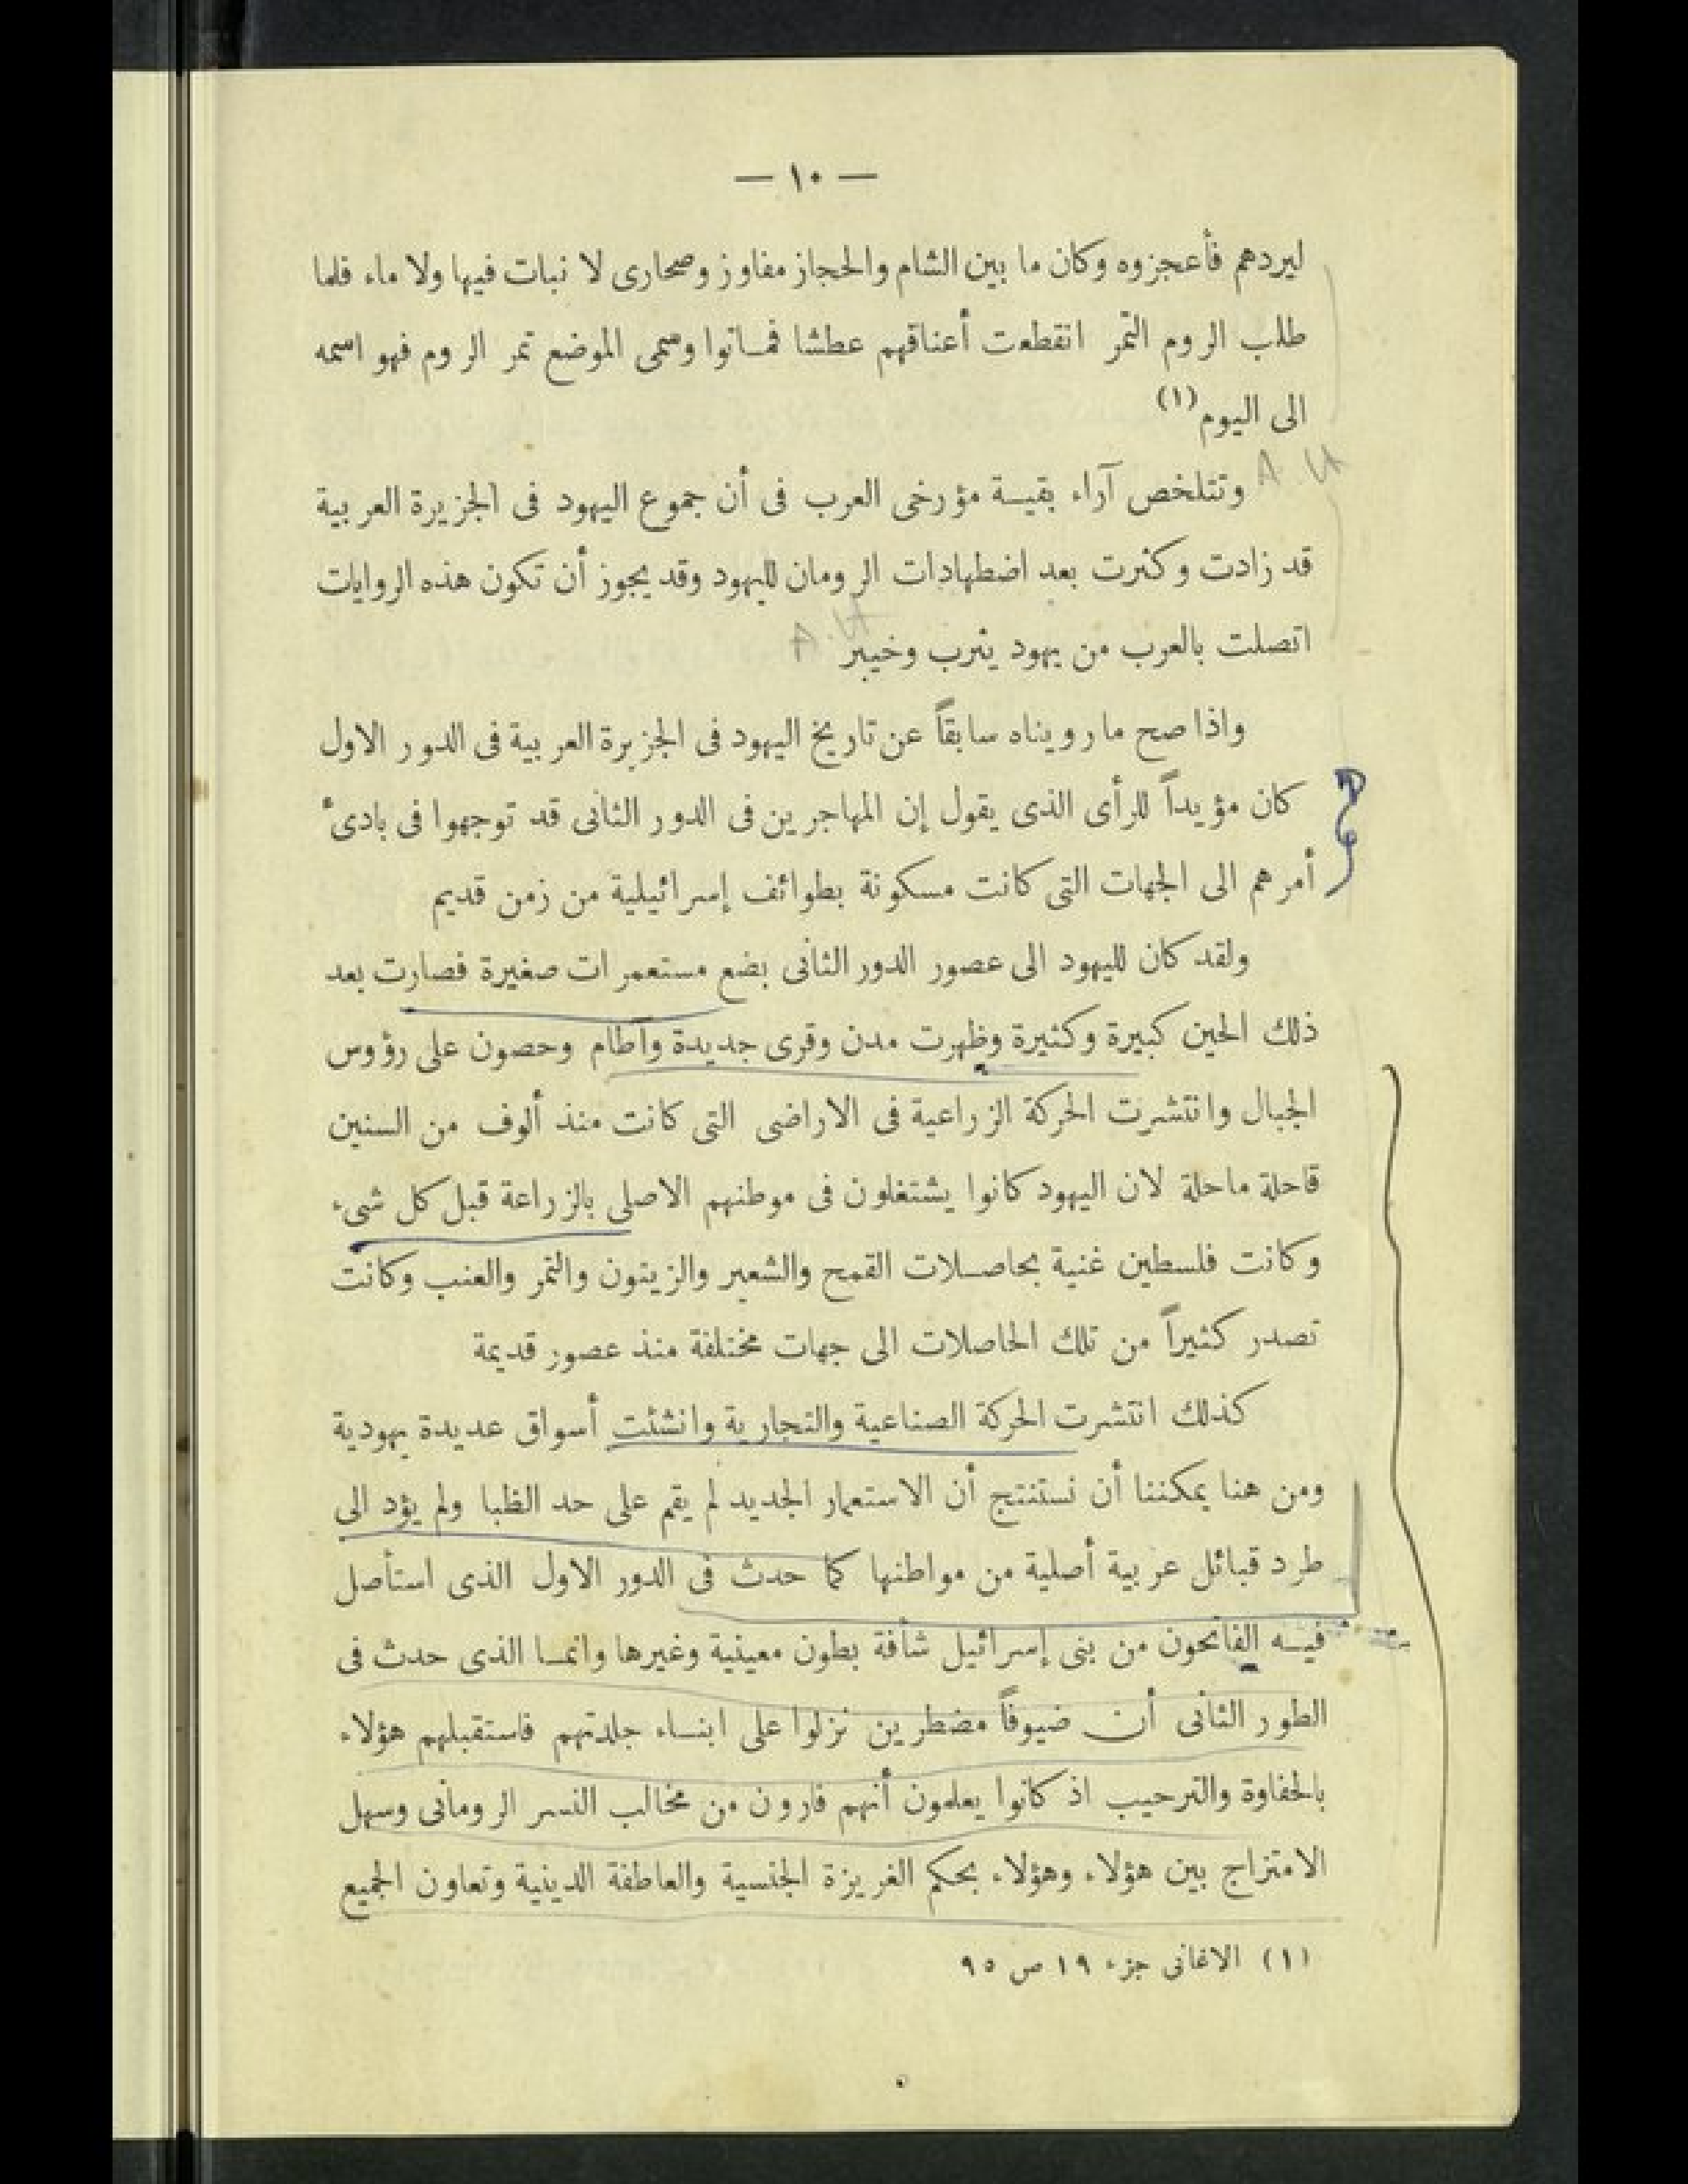 — ١٠ —
ليردهم فأعجزوه وكان ما بين الشام والحجاز مفاوز وصحارى لا نبات فيها ولا ماء فلما
طلب الروم التمر انقطعت أعناقهم عطشا فماتوا وسمى الموضع تمر الروم فهو اسمه
الى اليوم (١)
وتتلخص آراء بقية مؤرخى العرب فى أن جموع اليهود فى الجزيرة العربية
قد زادت وكثرت بعد اضطهادات الرومان لليهود وقد يجوز أن تكون هذه الروايات
اتصلت بالعرب من يهود يثرب وخيبر
واذا صح ما رويناه سابقاً عن تاريخ اليهود فى الجزيرة العربية فى الدور الاول
كان مؤيداً للرأى الذى يقول إن المهاجرين فى الدور الثانى قد توجهوا فى بادىء
أمرهم الى الجهات التى كانت مسكونة بطوائف إسرائيلية من زمن قديم
ولقد كان لليهود الى عصور الدور الثانى بضع مستعمرات صغيرة فصارت بعد
ذلك الحين كبيرة وكثيرة وظهرت مدن وقرى جديدة وآطام وحصون على رؤوس
الجبال وانتشرت الحركة الزراعية فى الاراضى التى كانت منذ ألوف من السنين
قاحلة ماحلة لان اليهود كانوا يشتغلون فى موطنهم الاصلى بالزراعة قبل كل شىء
وكانت فلسطين غنية بحاصلات القمح والشعير والزيتون والتمر والعنب وكانت
تصدر كثيراً من تلك الحاصلات الى جهات مختلفة منذ عصور قديمة
كذلك انتشرت الحركة الصناعية والتجارية وانشئت أسواق عديدة يهودية
ومن هنا يمكننا أن نستنتج أن الاستعمار الجديد لم يقم على حد الظبا ولم يؤد الى
طرد قبائل عربية أصلية من مواطنها كما حدث فى الدور الاول الذى استأصل
فيه الفاتحون من بنى إسرائيل شأفة بطون معينية وغيرها وانما الذى حدث فى
الطور الثانى أن ضيوفاً مضطرين نزلوا على ابناء جلدتهم فاستقبلهم هؤلاء
بالحفاوة والترحيب اذ كانوا يعلمون أنهم فارون من مخالب النسر الرومانى وسهل
الامتزاج بين هؤلاء وهؤلاء بحكم الغريزة الجنسية والعاطفة الدينية وتعاون الجميع
(١) الاغانى جزء ١٩ ص ٩٥